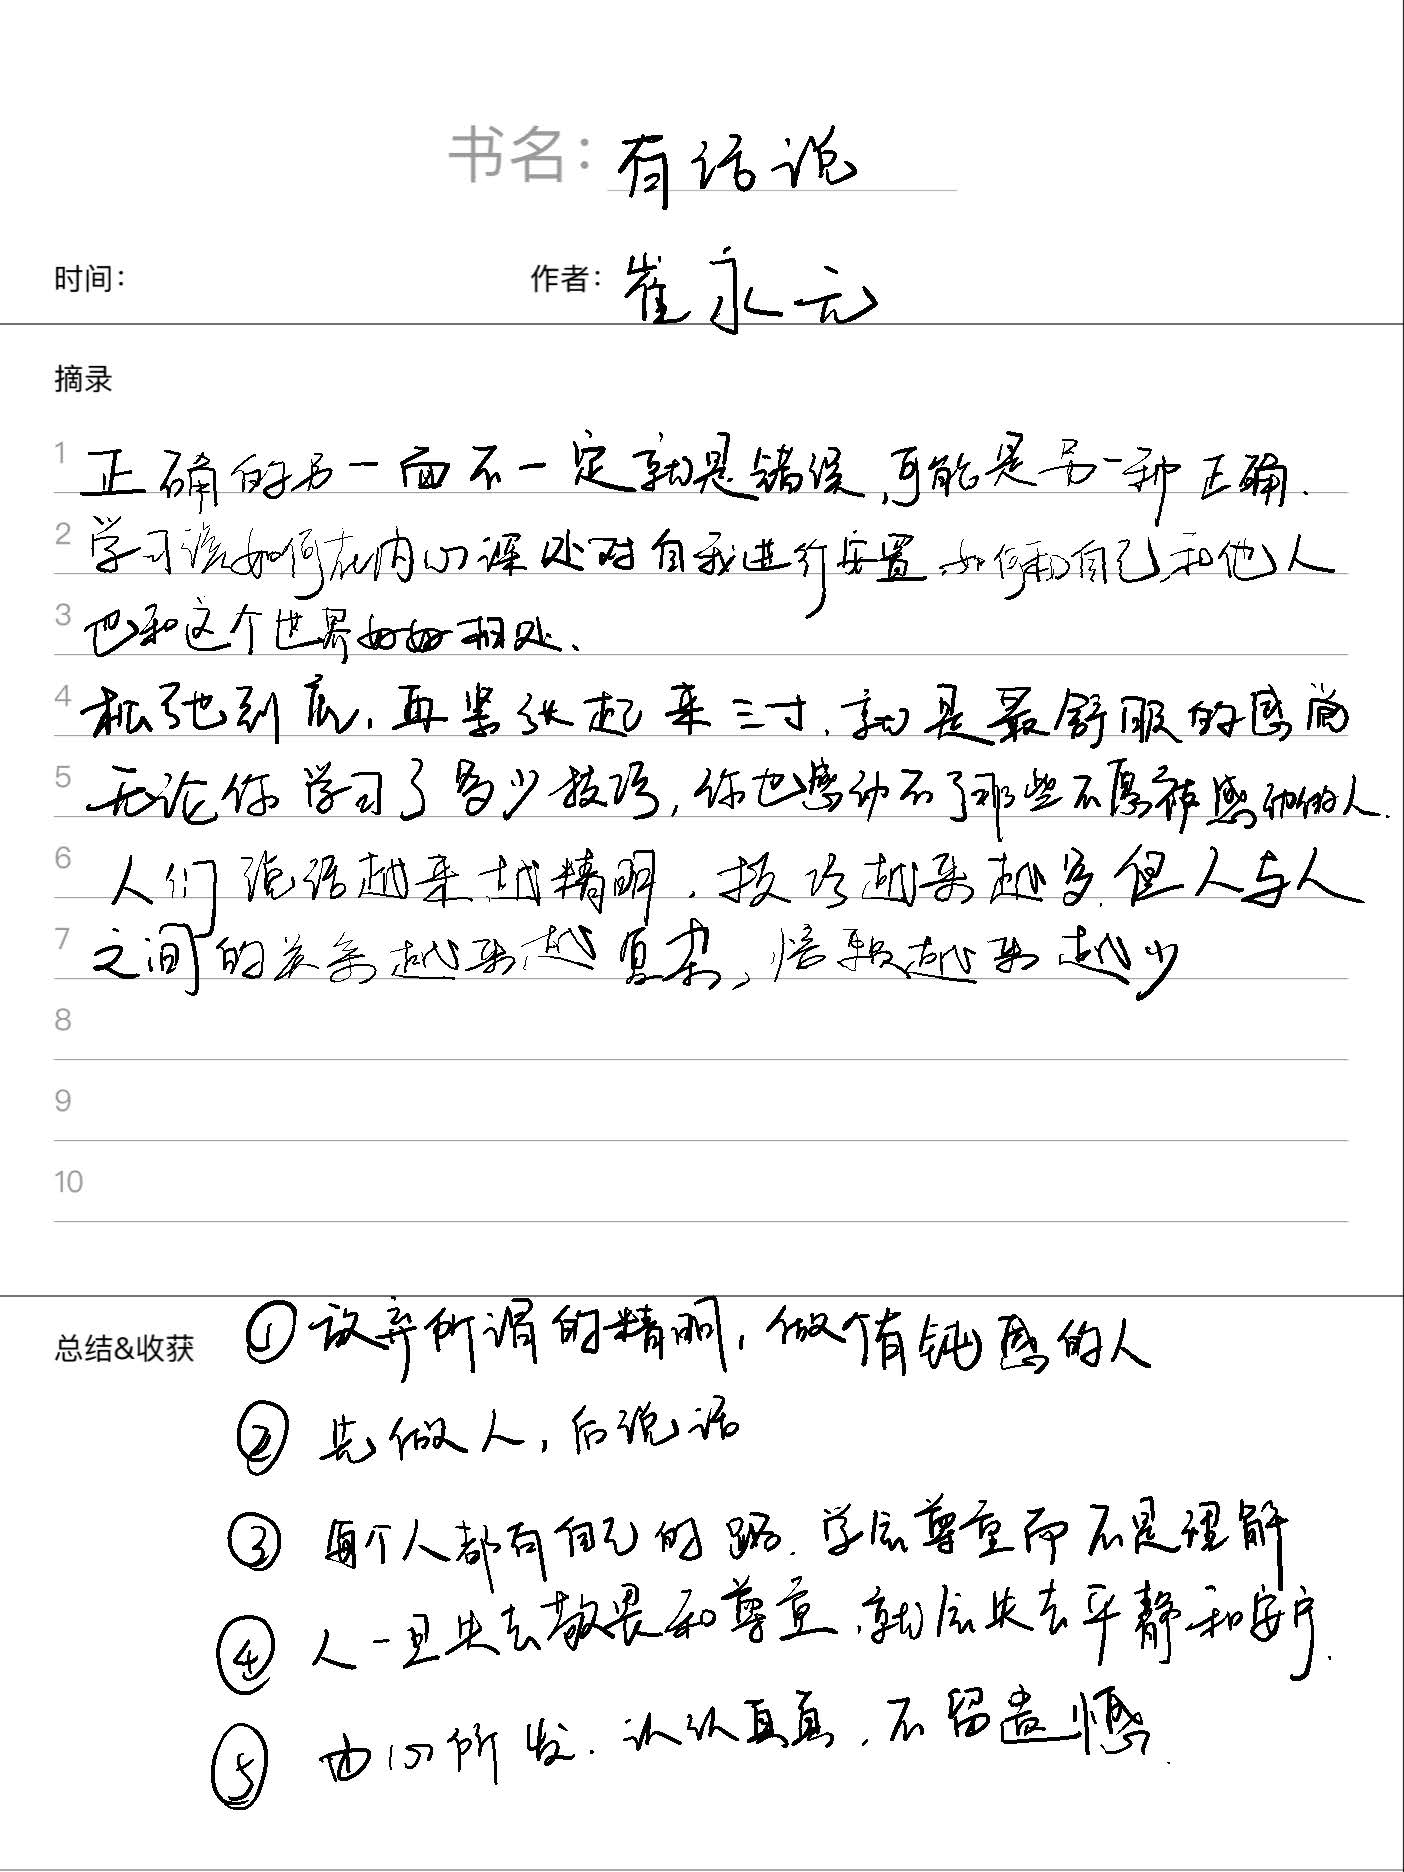 书名：有话说
时间：
作者：崔永元
摘录
1 正确的另一面不一定就是错误，可能是另一种正确.
2 学习该如何在内心深处对自我进行安置.如何和自己,和他人
3 也和这个世界好好相处、
4 松弛到底，再紧张起来三寸，就是最舒服的感觉
5 无论你学习了多少技巧，你也感动不了那些不愿被感动的人.
6 人们说话越来越精明，技巧越来越多.但人与人
7 之间的关系越来越复杂，越来越少
8
9
10
总结&收获
① 放弃所谓的精明，做个有钝感的人
② 先做人，后说话
③ 每个人都有自己的路.学会尊重而不是理解
④ 人一旦失去敬畏和尊重，就会失去平静和安宁.
⑤ 由心所发.认认真真，不留遗憾.